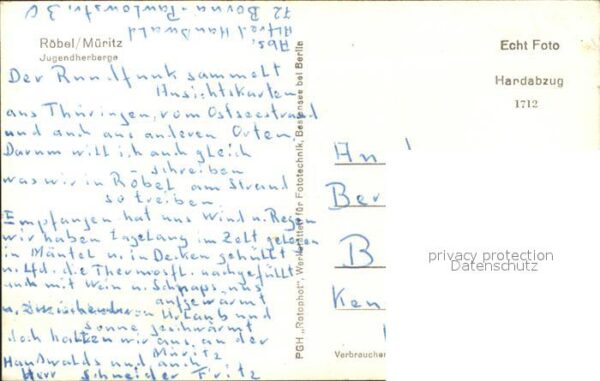 Abs.
Alfred Haußwald
72 Borna - Pawlowstr. 30
Röbel/Müritz
Jugendherberge
Der Rundfunk sammelt
Ansichtskarten
aus Thüringen, vom Ostseestrand
und auch aus anderen Orten.
Darum will ich auch gleich
schreiben
was wir in Röbel am Strand
so treiben.
Empfangen hat uns Wind u. Regen
wir haben tagelang im Zelt gelegen
in Mäntel u. in Decken gehüllt
u. lfd. die Thermosfl. nachgefüllt
auch mit Wein u. Schnaps uns
aufgewärmt
u. zwischendurch von Urlaub und
Sonne geschwärmt
doch halten wir aus, an der
Müritz
Haußwalds und auch
Herr Schneider Fritz
PGH „Rotophot", Werkstätten für Fototechnik, Bestensee bei Berlin
Echt Foto
Handabzug
1712
An
Ber
B
Ken
Verbraucher
privacy protection
Datenschutz